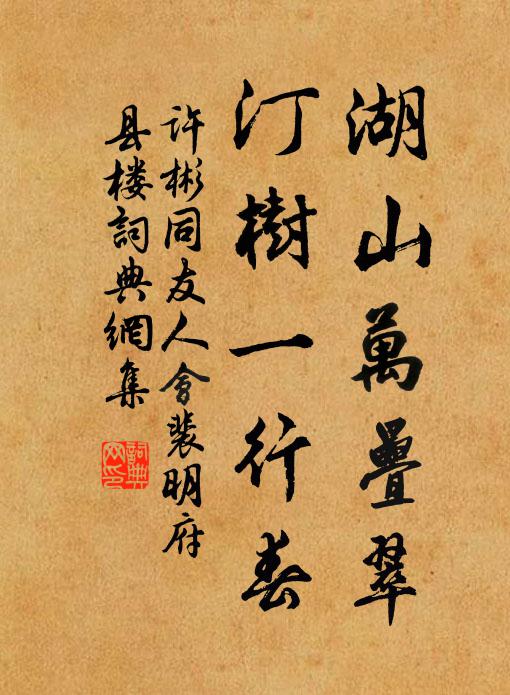 湖山萬疊翠
汀樹一行春
许彬同友人会裴明府
县楼詞典網集
詞典网印